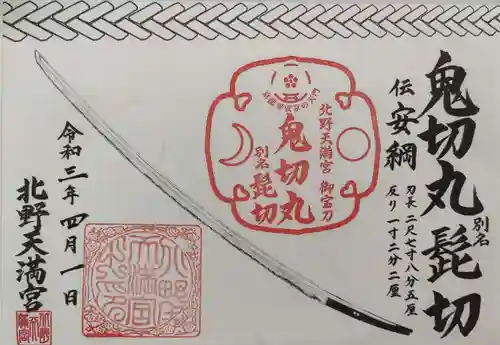 鬼切丸 別名 髭切
伝 安綱
刃長 二尺七寸八分五厘
反り 一寸二分二厘
北野天満宮 御宝刀
鬼切丸
別名 髭切
令和三年四月一日
北野天満宮